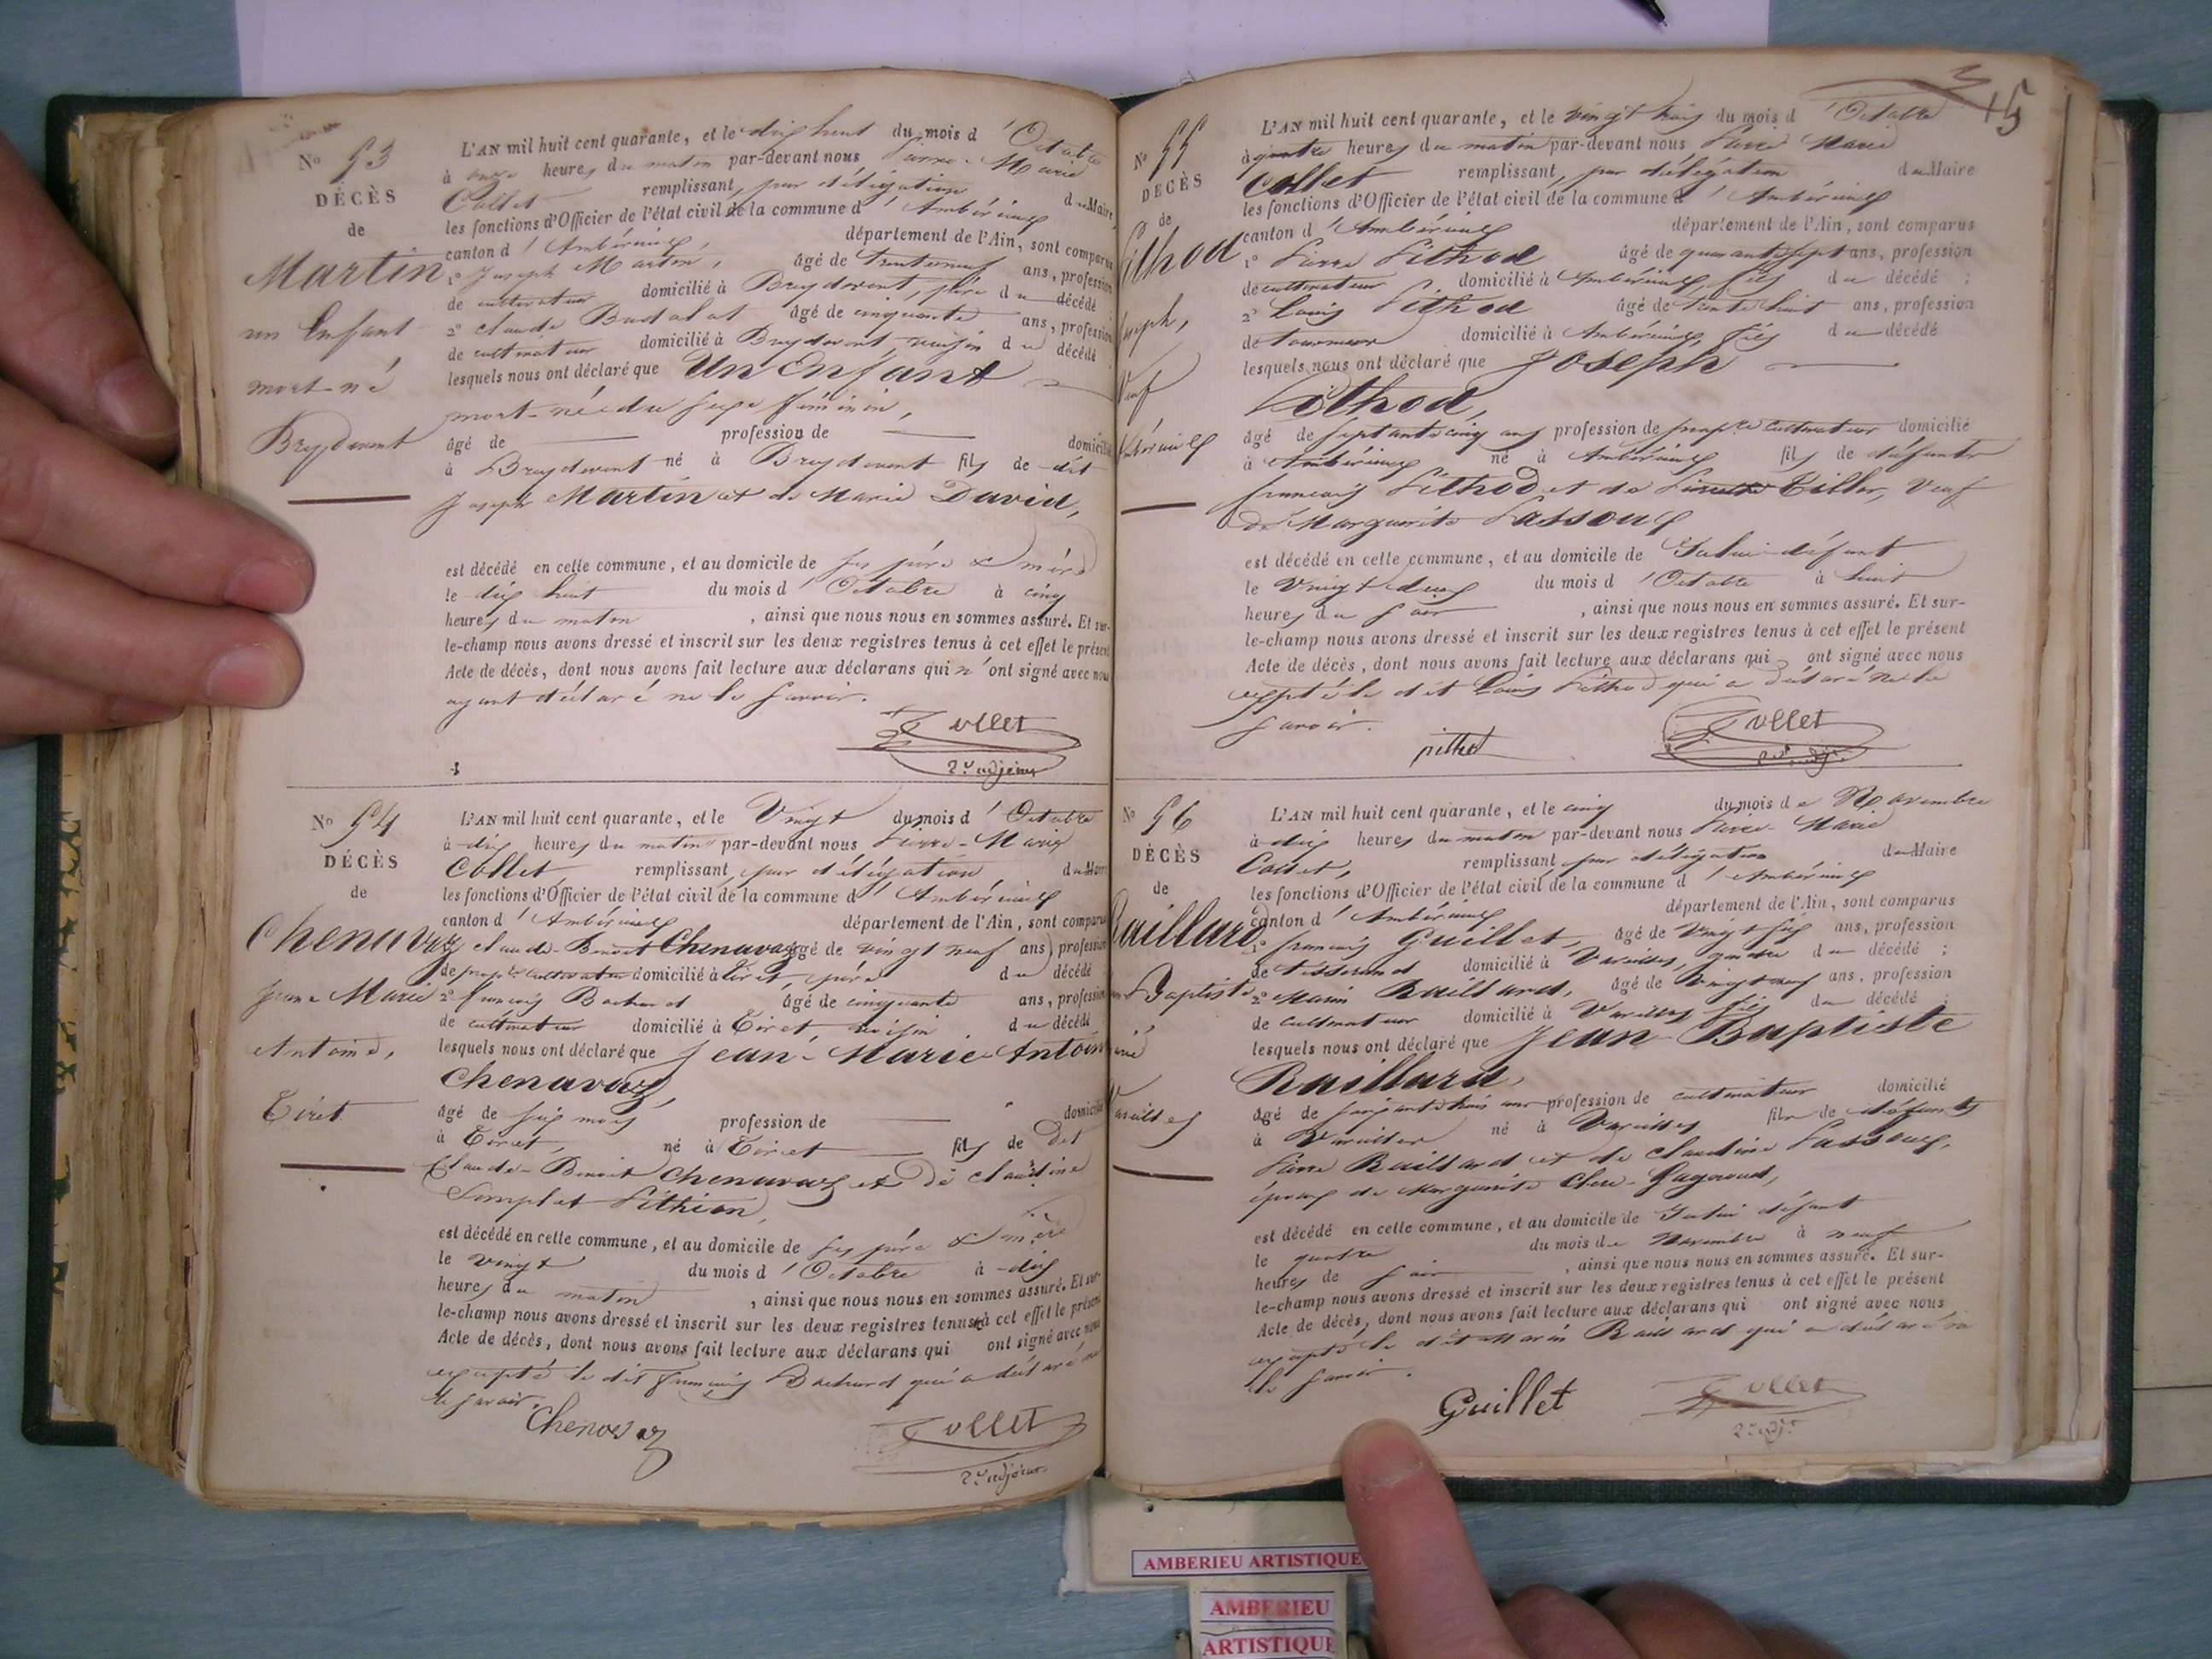 15
No 53
DÉCÈS
de
Martin
un Enfant
mort-né
Breydevent
L'AN mil huit cent quarante, et le dix huit du mois d'Octobre
à onze heures du matin par-devant nous Pierre-Marie
Collet remplissant, par délégation du Maire,
les fonctions d'Officier de l'état civil de la commune d'Ambérieux
canton d'Ambérieux, département de l'Ain, sont comparus
1° Joseph Martin, âgé de trente neuf ans, profession
de cultivateur domicilié à Breydevent, père du décédé;
2° Claude Badolat âgé de cinquante ans, profession
de cultivateur domicilié à Breydevent, voisin du décédé
lesquels nous ont déclaré que Un Enfant
mort-né du sexe féminin,
âgé de profession de domicilié
à Breydevent né à Breydevent fils de dit
Joseph Martin et de Marie David,
est décédé en cette commune, et au domicile de ses père & mère
le dix huit du mois d'Octobre à cinq
heures du matin, ainsi que nous nous en sommes assuré. Et sur-
le-champ nous avons dressé et inscrit sur les deux registres tenus à cet effet le présent
Acte de décès, dont nous avons fait lecture aux déclarans qui n'ont signé avec nous
ayant déclaré ne le savoir.
Collet
2e adjoint
No 54
DÉCÈS
de
Chenavaz
Jean-Marie
Antoine,
Tiret
L'AN mil huit cent quarante, et le Vingt du mois d'Octobre
à dix heures du matin par-devant nous Pierre-Marie
Collet remplissant, par délégation, du Maire
les fonctions d'Officier de l'état civil de la commune d'Ambérieux
canton d'Ambérieux département de l'Ain, sont comparus
Claude-Benoit Chenavaz âgé de vingt neuf ans, profession
de prop.re cultivateur domicilié à Tiret, père du décédé
2° François Bachod âgé de cinquante ans, profession
de cultivateur domicilié à Tiret, voisin du décédé
lesquels nous ont déclaré que Jean-Marie-Antoine
Chenavaz,
âgé de six mois profession de domicilié
à Tiret, né à Tiret fils de Dit
Claude-Benoit Chenavaz et de Claudine
Simplet Pithion,
est décédé en cette commune, et au domicile de ses père & mère
le vingt du mois d'Octobre à dix
heures du matin, ainsi que nous nous en sommes assuré. Et sur-
le-champ nous avons dressé et inscrit sur les deux registres tenus à cet effet le présent
Acte de décès, dont nous avons fait lecture aux déclarans qui ont signé avec nous
excepté le dit François Bachod qui a déclaré ne
le savoir.
Chenavaz
Collet
2e adjoint
No 55
DÉCÈS
de
Pithod
Joseph,
Veuf
Ambérieux
L'AN mil huit cent quarante, et le vingt trois du mois d'Octobre
à quatre heures du matin par-devant nous Pierre Marie
Collet remplissant, par délégation du Maire
les fonctions d'Officier de l'état civil de la commune d'Ambérieux
canton d'Ambérieux département de l'Ain, sont comparus
1° Pierre Pithod âgé de quarante sept ans, profession
de cultivateur domicilié à Ambérieux, fils du décédé;
2° Louis Pithod âgé de trente huit ans, profession
de tourneur domicilié à Ambérieux, fils du décédé
lesquels nous ont déclaré que Joseph
Pithod,
âgé de septante cinq ans profession de prop.re cultivateur domicilié
à Ambérieux né à Ambérieux fils de défunts
françois Pithod et de Pierrette Tiller, Veuf
de Marguerite Passoux
est décédé en cette commune, et au domicile de Dului défunt
le Vingt deux du mois d'Octobre à huit
heures du soir, ainsi que nous nous en sommes assuré. Et sur-
le-champ nous avons dressé et inscrit sur les deux registres tenus à cet effet le présent
Acte de décès, dont nous avons fait lecture aux déclarans qui ont signé avec nous
excepté le dit Louis Pithod qui a déclaré ne le
savoir.
pithod
Collet
2e adjt
No 56
DÉCÈS
de
Raillard
Jean Baptiste
marié
Vareilles
L'AN mil huit cent quarante, et le cinq du mois de Novembre
à dix heures du matin par-devant nous Pierre-Marie
Collet, remplissant par délégation du Maire
les fonctions d'Officier de l'état civil de la commune d'Ambérieux
canton d'Ambérieux département de l'Ain, sont comparus
1° françois Guillet, âgé de vingt six ans, profession
de tisserand domicilié à Vareilles, gendre du décédé;
2° Marin Raillard, âgé de vingt neuf ans, profession
de cultivateur domicilié à Vareilles fils du décédé;
lesquels nous ont déclaré que Jean-Baptiste
Raillard,
âgé de soixante trois ans profession de cultivateur domicilié
à Vareilles né à Vareilles fils de défunts
Pierre Raillard et de Claudine Passoux,
époux de Marguerite Chene-Gagnoud,
est décédé en cette commune, et au domicile de Dului défunt
le quatre du mois de Novembre à neuf
heures de soir, ainsi que nous nous en sommes assuré. Et sur-
le-champ nous avons dressé et inscrit sur les deux registres tenus à cet effet le présent
Acte de décès, dont nous avons fait lecture aux déclarans qui ont signé avec nous
excepté le dit Marin Raillard qui a déclaré ne
le savoir.
Guillet
Collet
2e adjt
AMBERIEU ARTISTIQUE
AMBERIEU
ARTISTIQUE